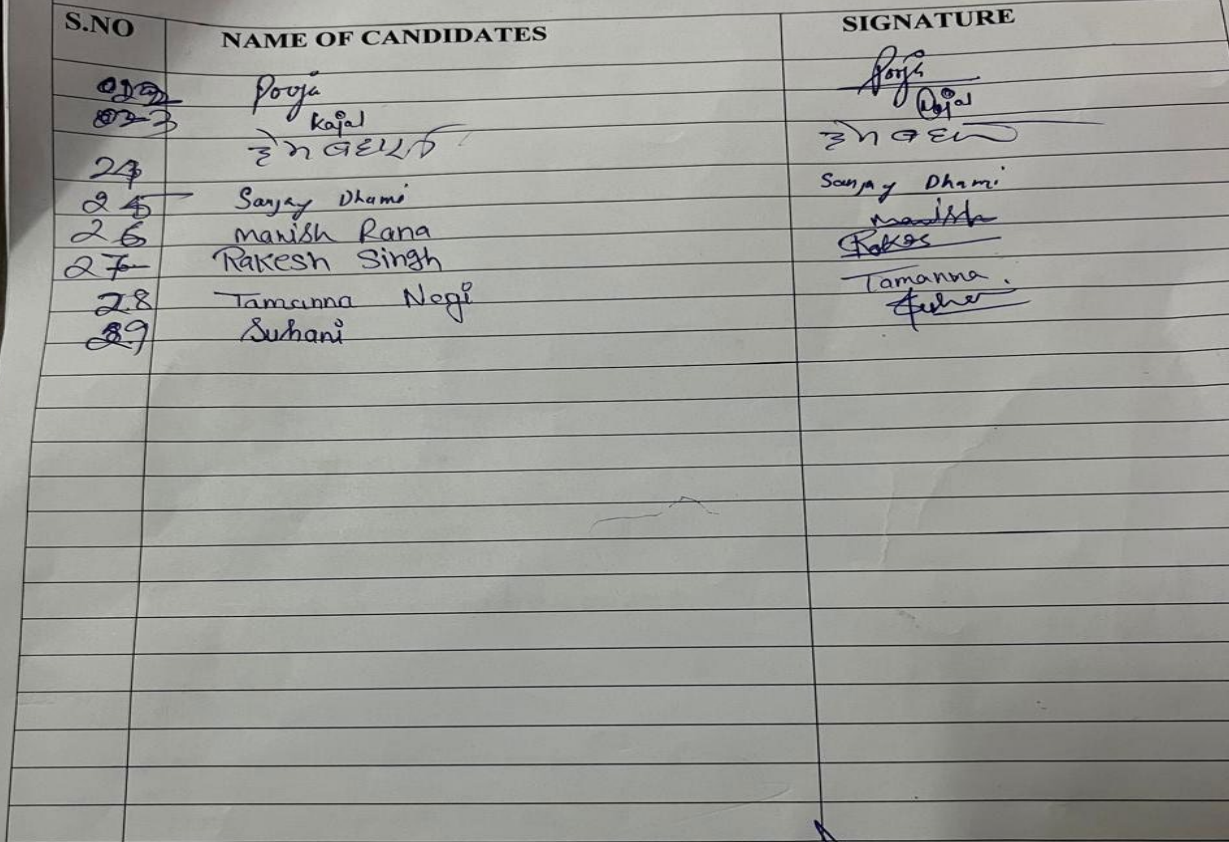 S.NO NAME OF CANDIDATES SIGNATURE
022 Pooja Pooja
023 Kajal Kajal
24
25 Sanjay Dhami Sanjay Dhami
26 Manish Rana Manish
27 Rakesh Singh Rakes
28 Tamanna Negi Tamanna.
29 Suhani